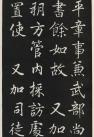 平章事兼武部尚
書餘如故又加
朔方管內採訪處
置使又加司徒